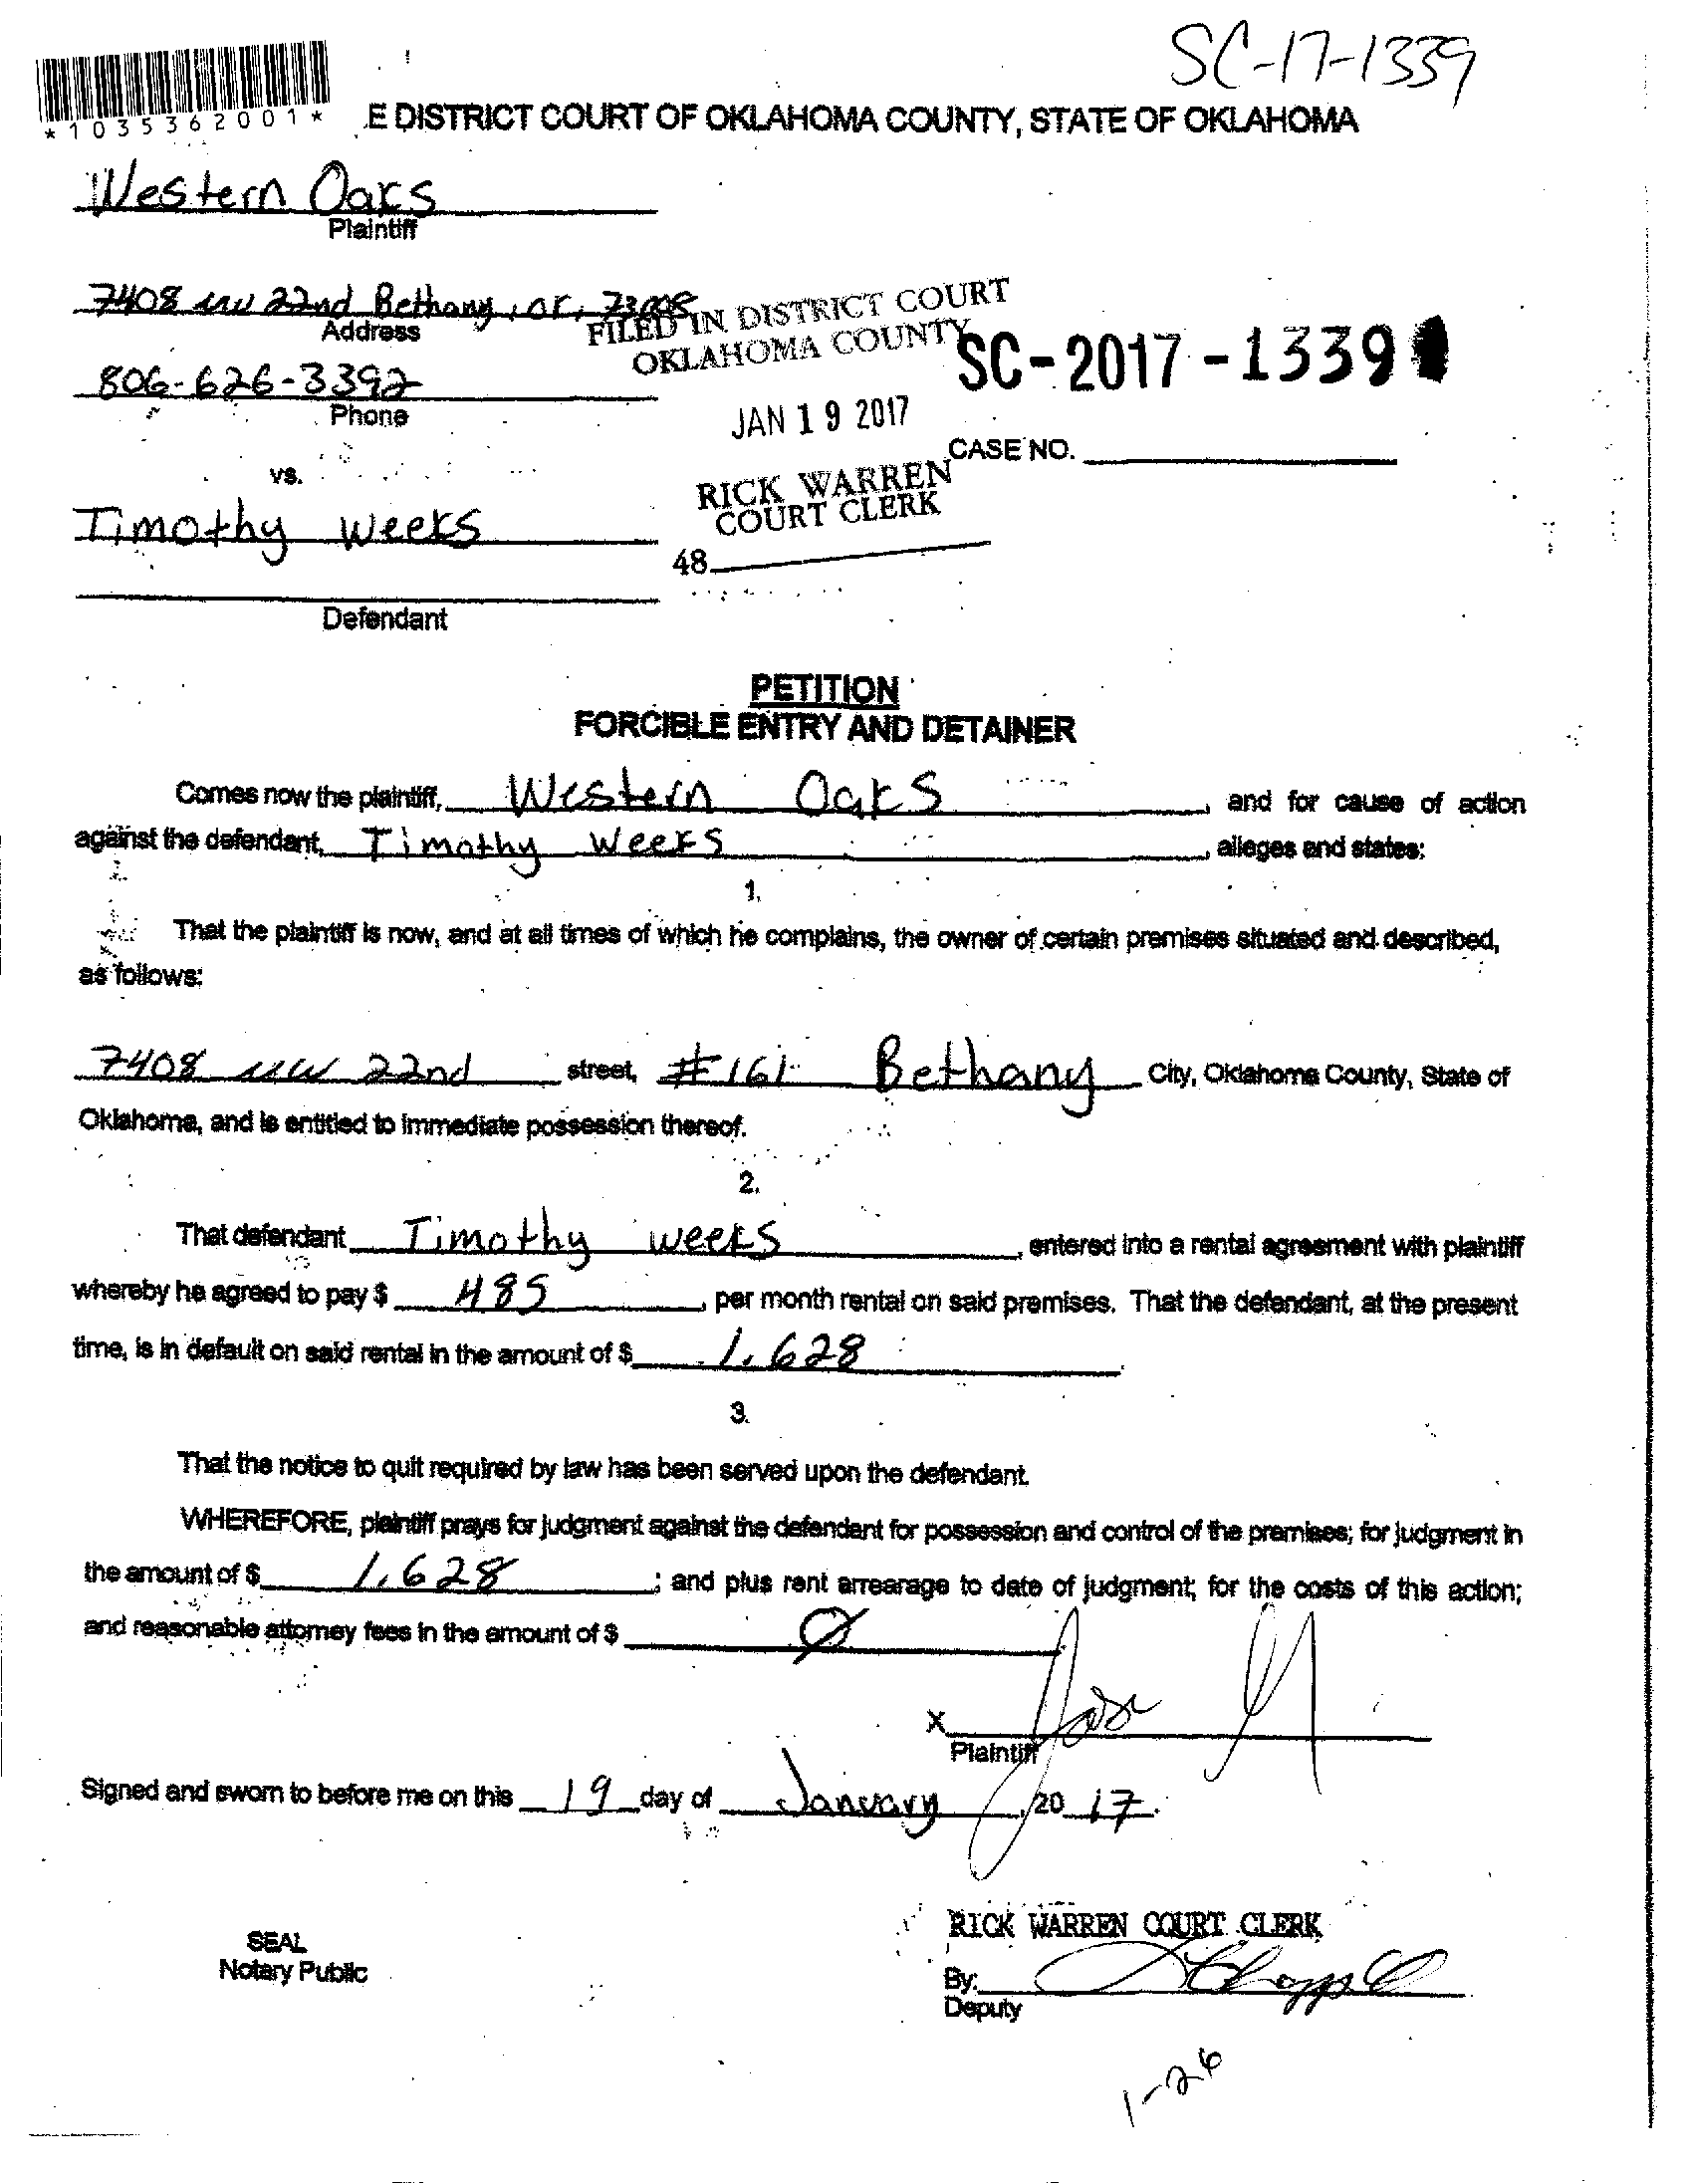 SC-17-1339
*1035362001*
E DISTRICT COURT OF OKLAHOMA COUNTY, STATE OF OKLAHOMA
Western Oaks
Plaintiff
7408 NW 22nd Bethany, OK, 73008
Address
FILED IN DISTRICT COURT
OKLAHOMA COUNTY
SC-2017-1339
806-626-3392
Phone
JAN 19 2017
CASE NO.
vs.
RICK WARREN
COURT CLERK
Timothy Weeks
48
Defendant
PETITION
FORCIBLE ENTRY AND DETAINER
Comes now the plaintiff, Western Oaks, and for cause of action
against the defendant, Timothy Weeks, alleges and states:
1.
That the plaintiff is now, and at all times of which he complains, the owner of certain premises situated and described,
as follows:
7408 NW 22nd street, #161 Bethany City, Oklahoma County, State of
Oklahoma, and is entitled to immediate possession thereof.
2.
That defendant Timothy Weeks, entered into a rental agreement with plaintiff
whereby he agreed to pay $ 485, per month rental on said premises. That the defendant, at the present
time, is in default on said rental in the amount of $ 1,628.
3.
That the notice to quit required by law has been served upon the defendant.
WHEREFORE, plaintiff prays for judgment against the defendant for possession and control of the premises; for judgment in
the amount of $ 1,628; and plus rent arrearage to date of judgment; for the costs of this action;
and reasonable attorney fees in the amount of $ Ø
X
Plaintiff
Signed and sworn to before me on this 19 day of January, 20 17.
RICK WARREN COURT CLERK
SEAL
Notary Public
By:
Deputy
1-26